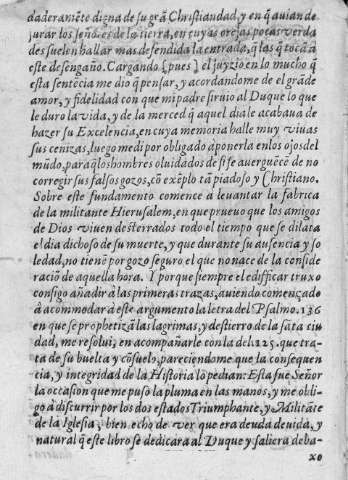 daderamẽte digna de su grã Christiandad, y en q̃ auian de
jurar los señores de la tierra, en cuyas orejas pocas verda
des suelen hallar mas defendida la entrada, q̃ las q̃ tocã à
este desengaño. Cargando {pues} el juyzio en lo mucho q̃
esta sentẽcia me dio q̃ pensar, y acordandome de el grãde
amor, y fidelidad con que mi padre siruio al Duque lo que
le duro la vida, y de la merced q̃ aquel dia le acabaua de
hazer su Excelencia, en cuya memoria halle muy viuas
sus cenizas, luego me di por obligado à ponerla en los ojos del
mũdo, para q̃ los hombres oluidados de si se auerguẽcẽ de no
corregir sus falsos gozos, cõ exẽplo tã piadoso y Christiano.
Sobre este fundamento comence a leuantar la fabrica
de la militante Hierusalem, en que prueuo que los amigos
de Dios viuen desterrados todo el tiempo que se dilata
el dia dichoso de su muerte, y que durante su ausencia y so
ledad, no tienẽ por gozo seguro el que no nace de la conside
raciõ de aquella hora. Y porque siempre el edifficar truxo
consigo añadir à las primeras trazas, auiendo comenzado
à acommodar à este argumento la letra del Psalmo. 136
en que se prophetizã las lagrimas, y destierro de la sãta ciu
dad, me resolui, en acompañarle con la del 125. que tra-
ta de su buelta y cõsuelo, pareciendome que la consequen
cia, y integridad de la Historia lo pedian: Esta fue Señor
la occasion que me puso la pluma en las manos, y me obli-
go à discurrir por los dos estados Triumphante, y Militãte
de la Iglesia; bien echo de ver que era deuda deuida, y
natural q̃ este libro se dedicara al Duque y saliera deba-
xo